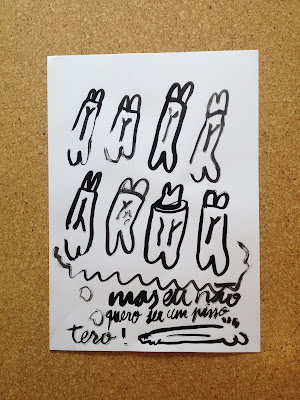 mas eu não
quero ser um
tero!